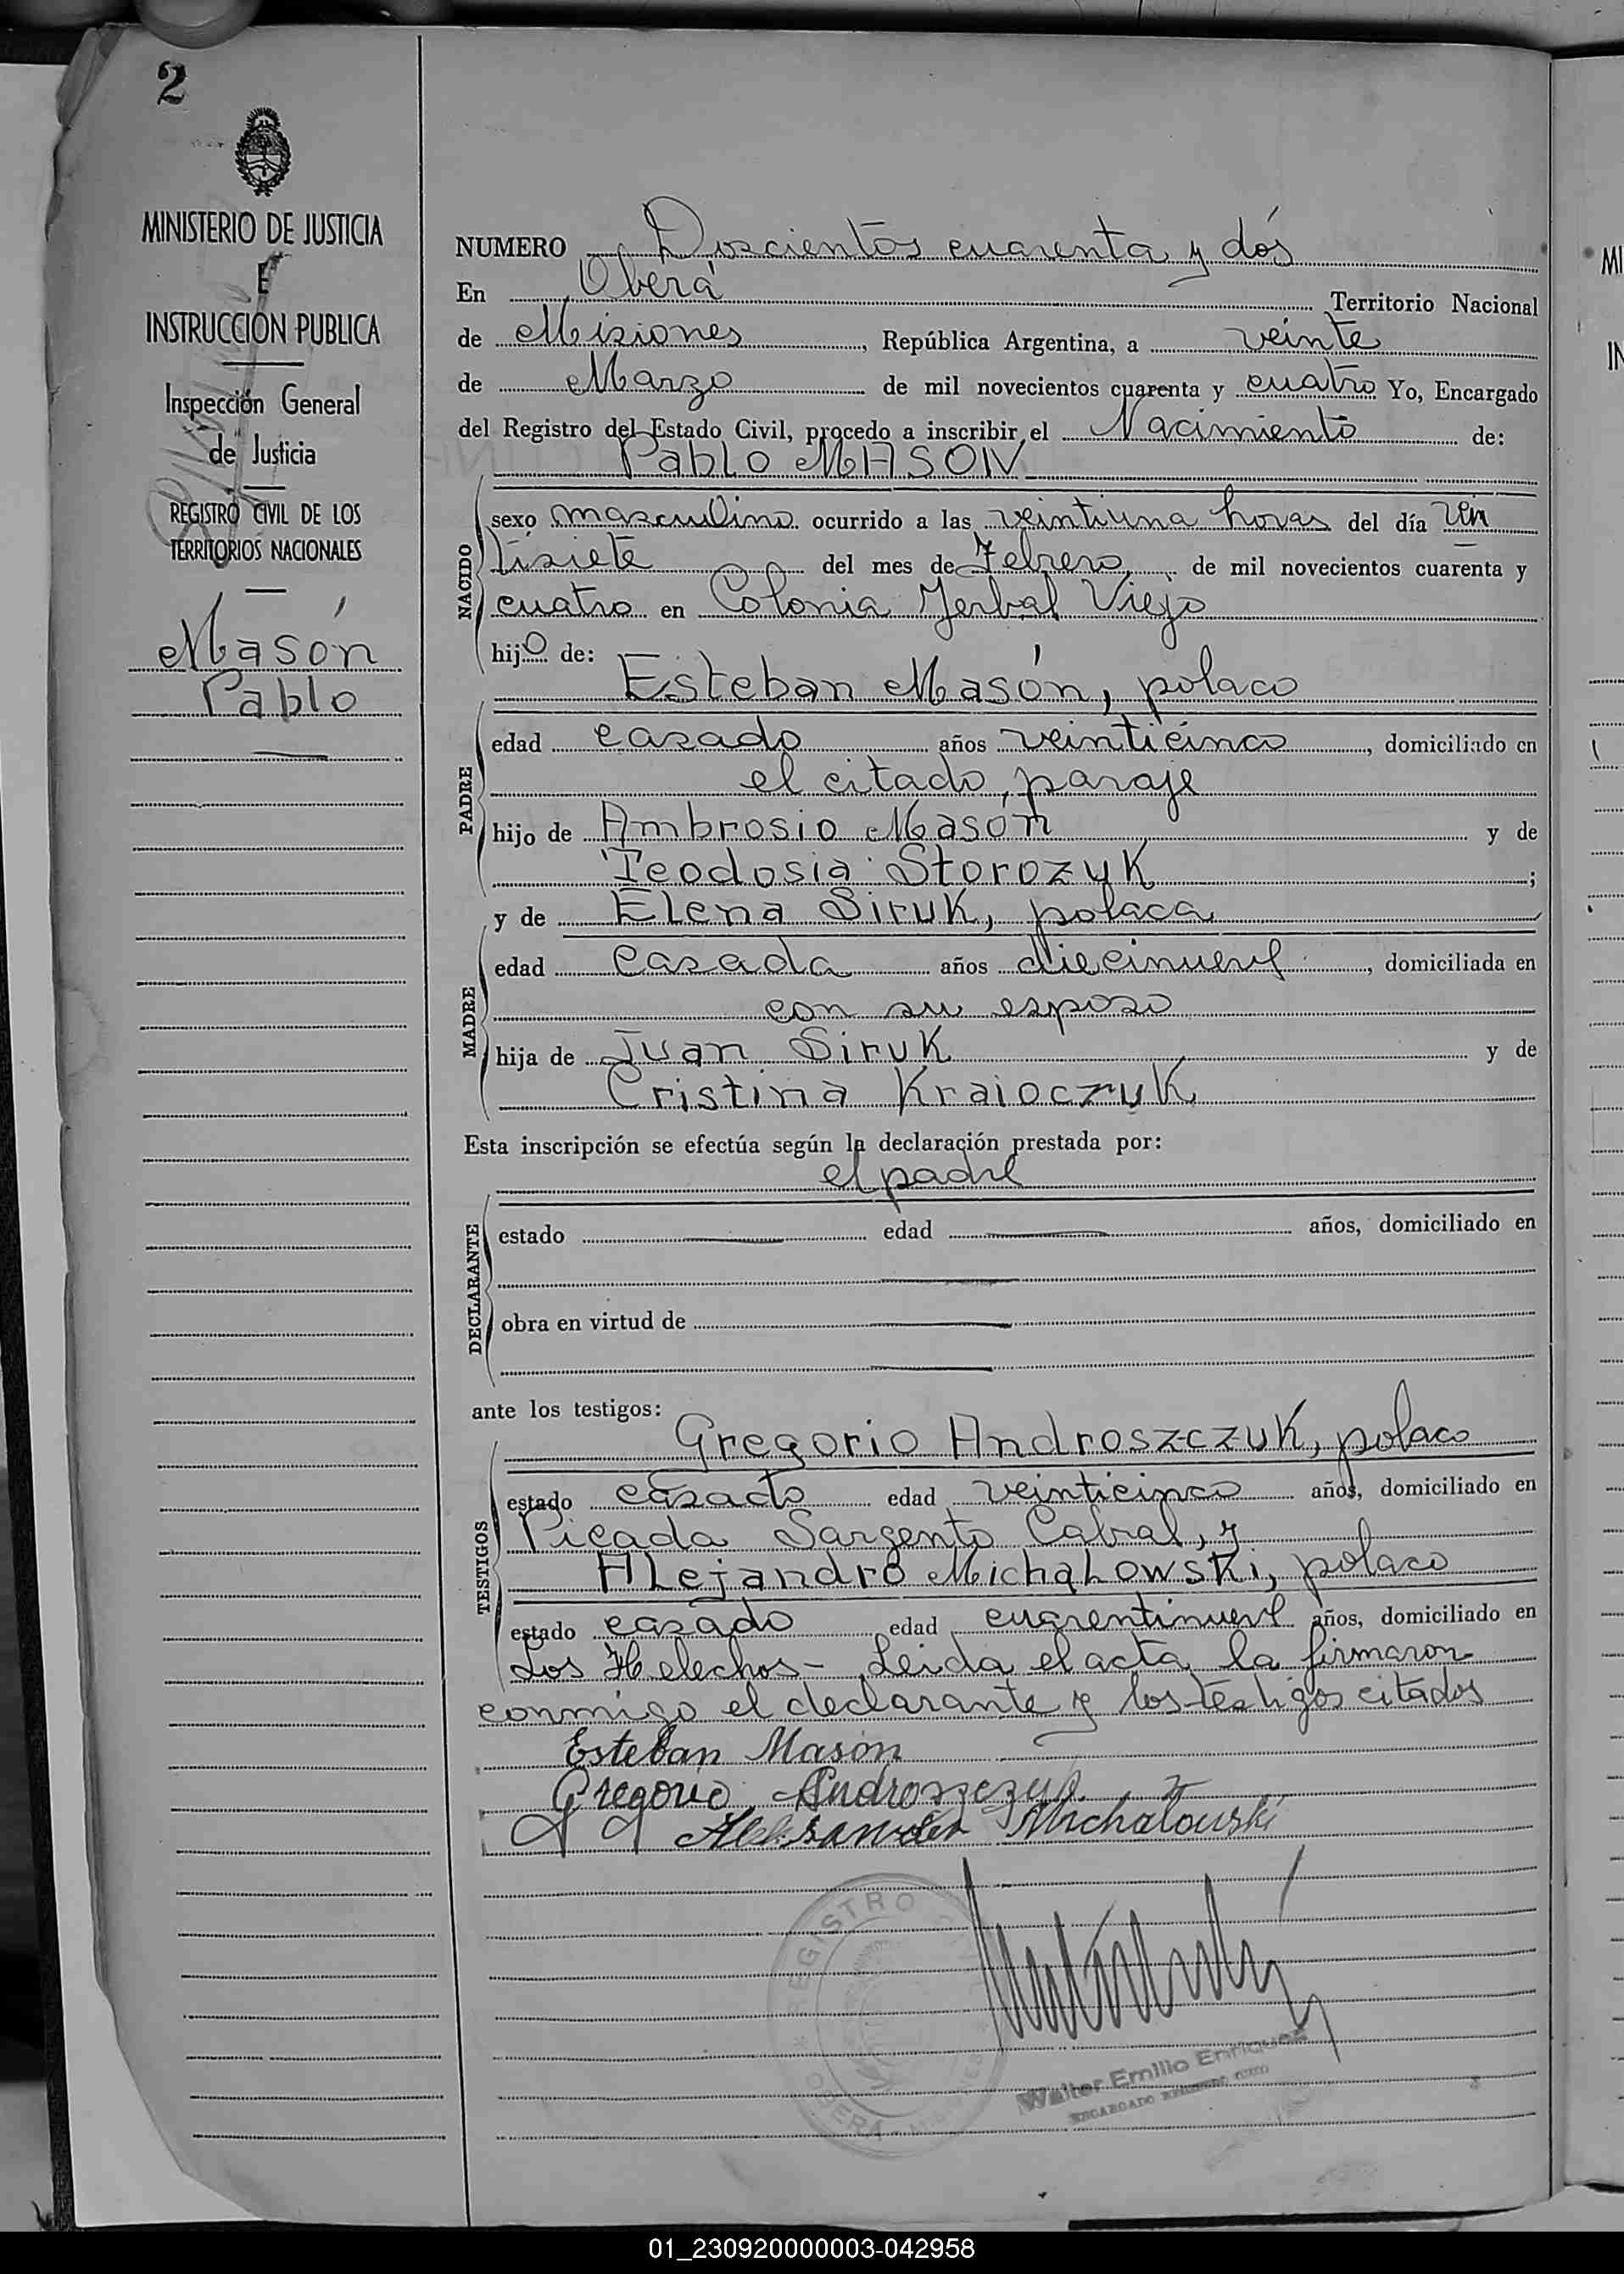 2
MINISTERIO DE JUSTICIA
E
INSTRUCCIÓN PUBLICA
Inspección General
de Justicia
REGISTRO CIVIL DE LOS
TERRITORIOS NACIONALES
Masón
Pablo
NUMERO Doscientos cuarenta y dós
En Oberá Territorio Nacional
de Misiones, República Argentina, a veinte
de Marzo de mil novecientos cuarenta y cuatro Yo, Encargado
del Registro del Estado Civil, procedo a inscribir el Nacimiento de:
Pablo MASON
NACIDO
sexo masculino ocurrido a las veintiuna horas del día vein
tisiete del mes de Febrero de mil novecientos cuarenta y
cuatro en Colonia Yerbal Viejo
hijo de:
Esteban Masón, polaco
PADRE
edad casado años veinticinco, domiciliado en
el citado paraje
hijo de Ambrosio Masón y de
Teodosia Storozyk;
y de Elena Siruk, polaca
MADRE
edad casada años diecinueve, domiciliada en
con su esposo
hija de Juan Siruk y de
Cristina Kraioczuk
Esta inscripción se efectúa según la declaración prestada por:
el padre
DECLARANTE
estado edad años, domiciliado en
obra en virtud de
ante los testigos:
Gregorio Androszczuk, polaco
TESTIGOS
estado casado edad veinticinco años, domiciliado en
Picada Sargento Cabral, y
Alejandro Michalowski, polaco
estado casado edad cuarentinueve años, domiciliado en
Los Helechos- Leida el acta la firmaron
conmigo el declarante y los testigos citados
Esteban Masón
Gregorio Androszczuk
Aleksander Michalowski
REGISTRO
OBERA
Walter Emilio Enriquez
ENCARGADO
MI
IN
01_230920000003-042958